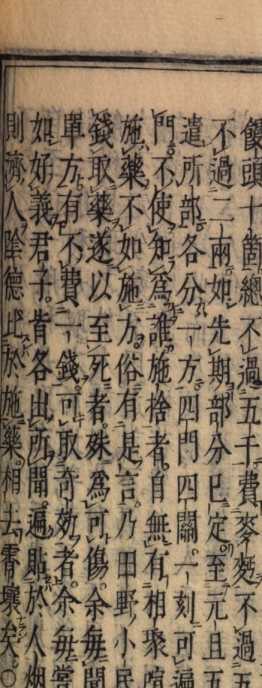 饅頭十箇總不過五千費麥麪不過五
不過二兩如先期部分巳定至元旦五
遣所部各分一方四門四關一刻可遍
門不使知為誰施捨者自無有相聚喧
施藥不如施方俗有是言乃田野小民
錢取藥遂以至死者殊為可傷余每聞
單方有不費一錢可取奇効者余每嘗
如好義君子肯各出所聞遍貼於人烟
則濟人陰德比於施藥相去霄壤矣○